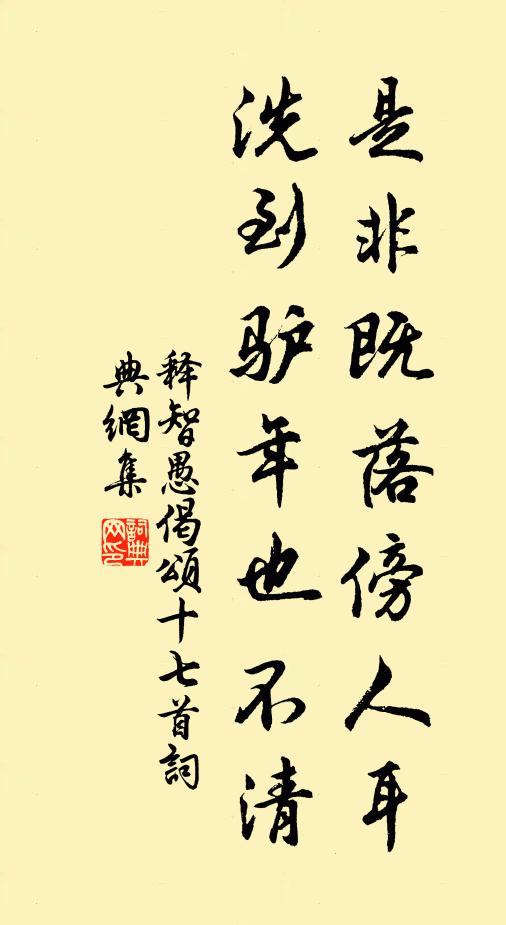 是非既落傍人耳
洗到驴年也不清
释智愚偈頌十七首詞
典網集
詞典网印